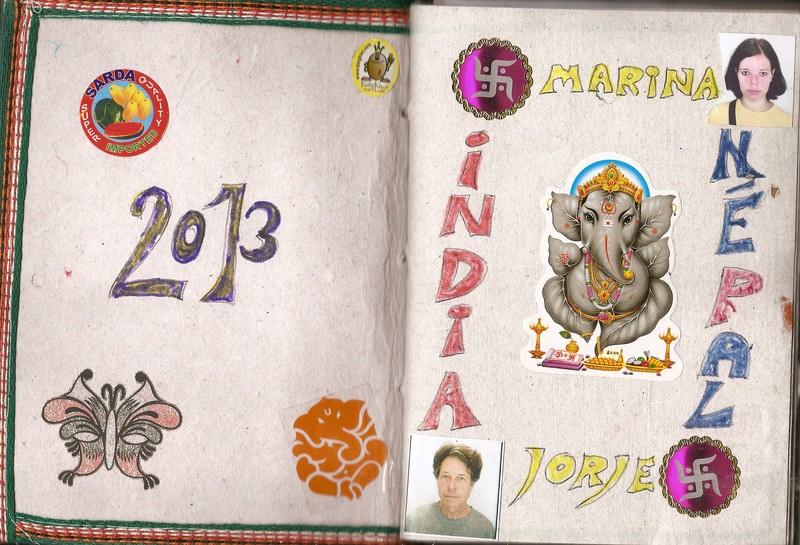 SARDA
QUALITY
SUPER
IMPORTED
2013
MARiNA
iNDiA
NÉPAL
JORJE